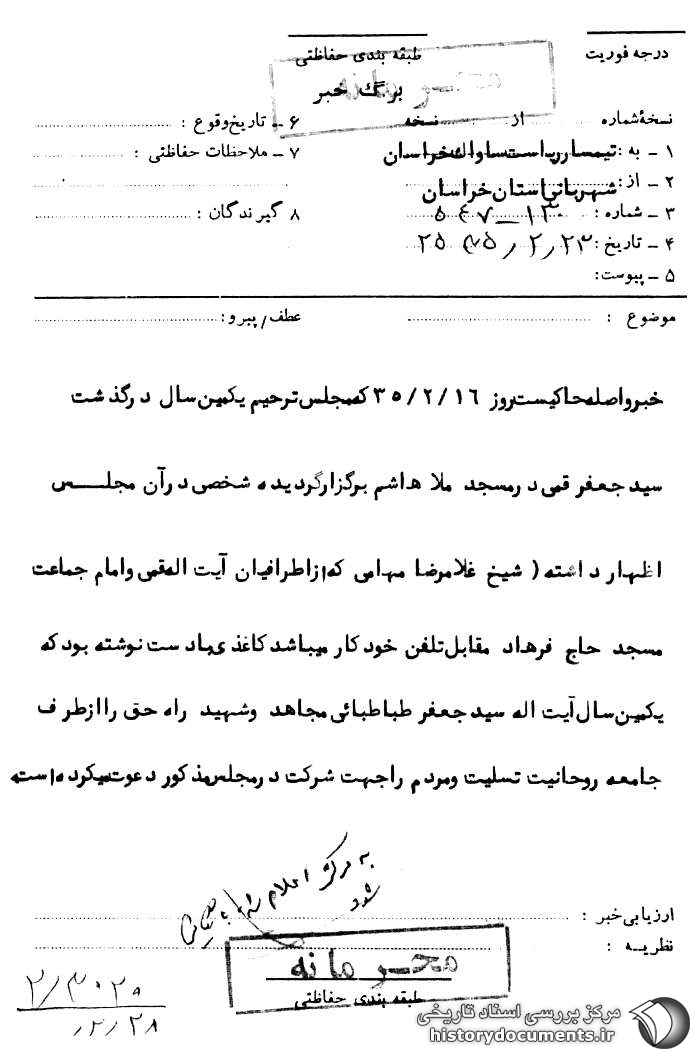 درجه فوریت
طبقه بندی حفاظتی
محرمانه
برگ خبر
نسخه شماره ........ از ........ نسخه
۱ ـ به : تیمسار ریاست ساواک خراسان
۲ ـ از : شهربانی استان خراسان
۳ ـ شماره :
۴ ـ تاریخ : ۲۵۳۵/۲/۲۳
۵ ـ پیوست:
۶ ـ تاریخ وقوع :
۷ ـ ملاحظات حفاظتی :
۸ گیرندگان :
موضوع :
عطف/ پیرو :
خبر واصله حاکیست روز ۳۵/۲/۱۶ که مجلس ترحیم یکمین سال درگذشت
سید جعفر قمی در مسجد ملا هاشم برگزار گردیده شخصی در آن مجلس
اظهار داشته ( شیخ غلامرضا مهامی که از اطرافیان آیت اله قمی و امام جماعت
مسجد حاج فرهاد مقابل تلفن خودکار میباشد کاغذی با دست نوشته بود که
یکمین سال آیت اله سید جعفر طباطبائی مجاهد و شهید راه حق را از طرف
جامعه روحانیت تسلیت و مردم را جهت شرکت در مجلس مذکور دعوت میکرده است
به مرکز اعلام
شود
ارزیابی خبر :
نظریه :
محرمانه
طبقه بندی حفاظتی
۲/۳۰۲۰
۲/۲۸
مرکز بررسی اسناد تاریخی
historydocuments.ir